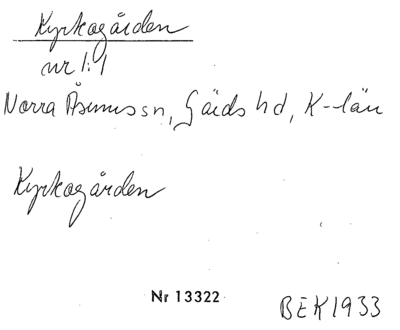 Kyrkogården
nr 1:1
Norra Åsumssn, Gärds hd, K-län
Kyrkogården
Nr 13322
BEK1933